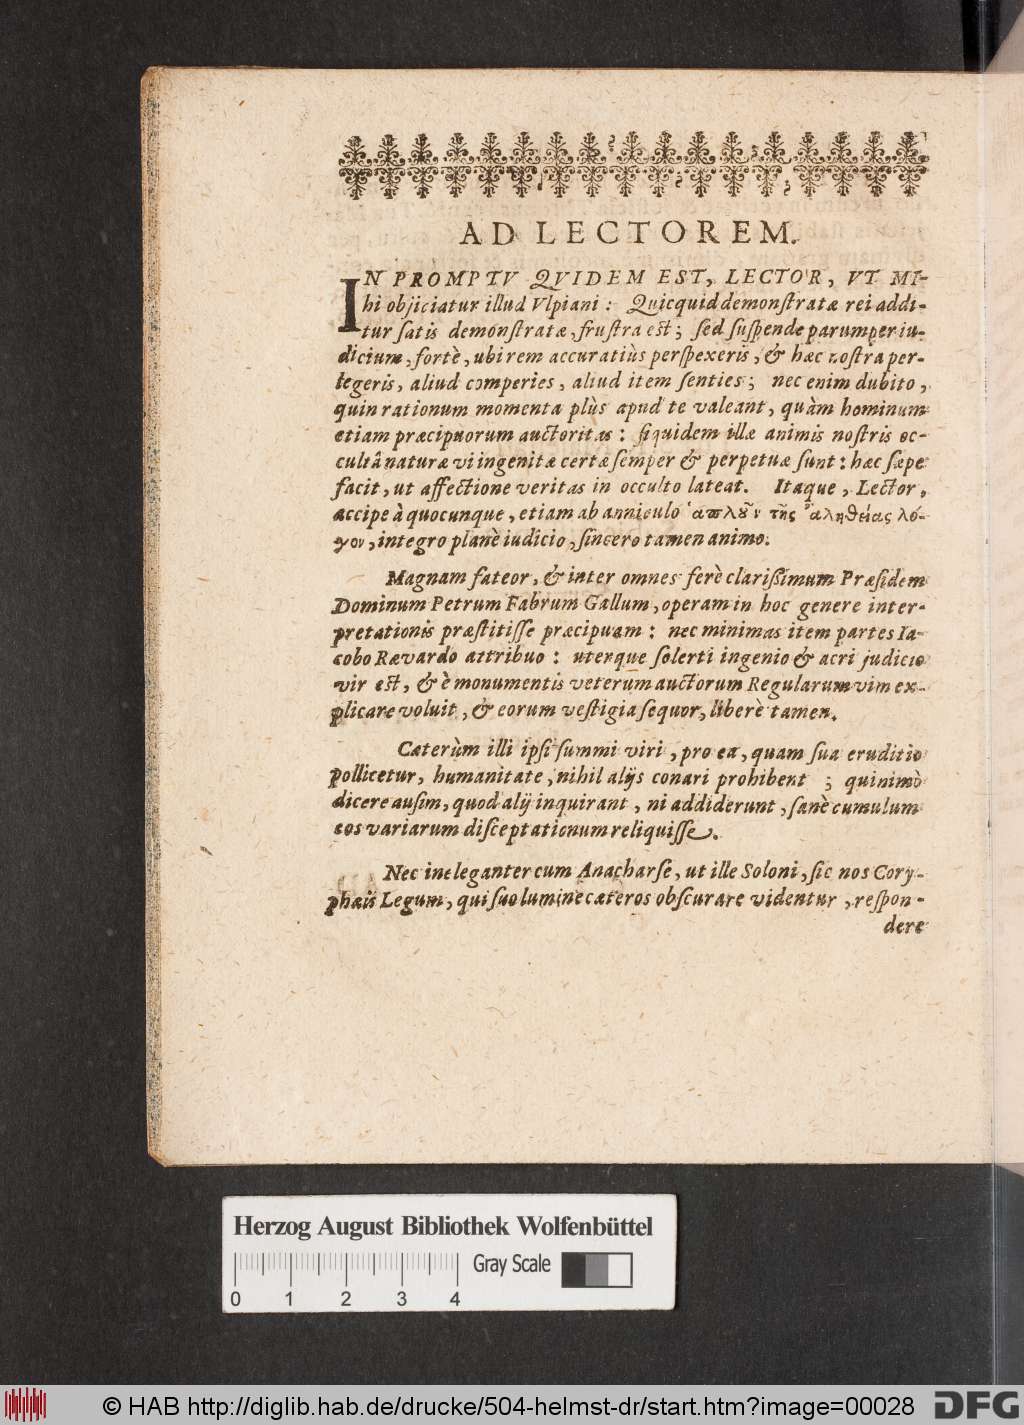 AD LECTOREM.
IN PROMPTV QVIDEM EST, LECTOR, VT MI-
hi objiciatur illud Vlpiani: Quicquid demonſtratæ rei addi-
tur ſatis demonſtratæ, fruſtra eſt; ſed ſuſpende parumper iu-
dicium, fortè, ubi rem accuratiùs perſpexeris, & hæc noſtra per-
legeris, aliud comperies, aliud item ſenties; nec enim dubito,
quin rationum momenta plùs apud te valeant, quàm hominum
etiam præcipuorum auctoritas: ſiquidem illæ animis noſtris oc-
cultâ naturæ vi ingenitæ certæ ſemper & perpetuæ ſunt: hæc ſæpe
facit, ut affectione veritas in occulto lateat. Itaque, Lector,
accipe à quocunque, etiam ab anniculo ἁπλοῦν τῆς ἀληθείας λό-
γον, integro planè iudicio, ſincero tamen animo.
Magnam fateor, & inter omnes ferè clariſſimum Præſidem
Dominum Petrum Fabrum Gallum, operam in hoc genere inter-
pretationis præſtitiſſe præcipuam: nec minimas item partes Ia-
cobo Rævardo attribuo: uterque ſolerti ingenio & acri judicio
vir eſt, & è monumentis veterum auctorum Regularum vim ex-
plicare voluit, & eorum veſtigia ſequor, liberè tamen.
Cæterùm illi ipſi ſummi viri, pro ea, quam ſua eruditio
pollicetur, humanitate, nihil alijs conari prohibent; quinimò
dicere auſim, quod alij inquirant, ni addiderunt, ſanè cumulum
eos variarum diſceptationum reliquiſſe.
Nec ineleganter cum Anacharſe, ut ille Soloni, ſic nos Cory-
phæis Legum, qui ſuo lumine cæteros obſcurare videntur, reſpon-
dere
Herzog August Bibliothek Wolfenbüttel
Gray Scale
0 1 2 3 4
© HAB http://diglib.hab.de/drucke/504-helmst-dr/start.htm?image=00028
DFG